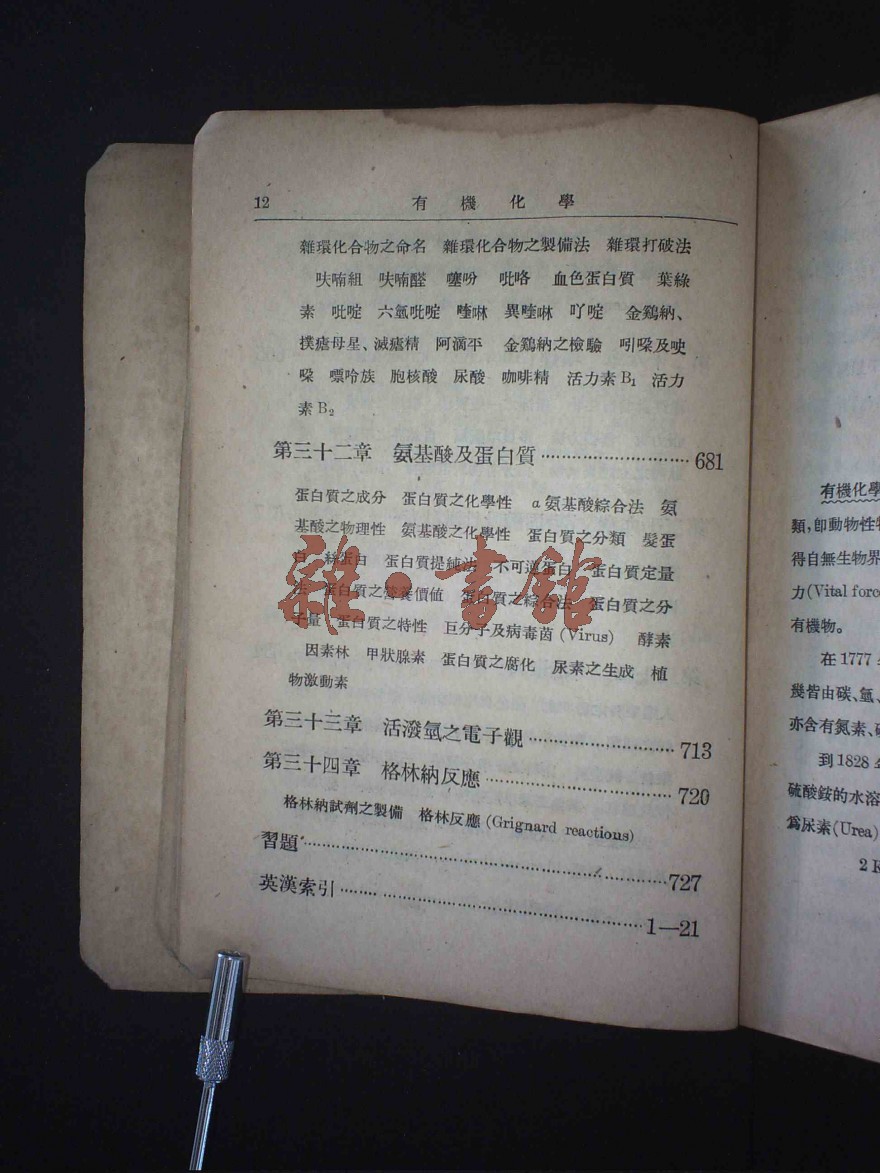 12 有機化學
雜環化合物之命名 雜環化合物之製備法 雜環打破法
呋喃組 呋喃醛 噻吩 吡咯 血色蛋白質 葉綠
素 吡啶 六氫吡啶 喹啉 異喹啉 吖啶 金鷄納、
撲瘧母星、滅瘧精 阿滴平 金鷄納之檢驗 吲哚及
嘌呤族 胞核酸 尿酸 咖啡精 活力素 B₁ 活力
素 B₂
第三十二章 氨基酸及蛋白質 ………………………… 681
蛋白質之成分 蛋白質之化學性 α 氨基酸綜合法 氨
基酸之物理性 氨基酸之化學性 蛋白質之分類 髮蛋
白 絲蛋白 蛋白質提純法 不可逆蛋白 蛋白質定量
法 蛋白質之營養價值 蛋白質之綜合法 蛋白質之分
子量 蛋白質之特性 巨分子及病毒菌 (Virus) 酵素
因素林 甲狀腺素 蛋白質之腐化 尿素之生成 植
物激動素
第三十三章 活潑氫之電子觀 ………………………… 713
第三十四章 格林納反應 ………………………… 720
格林納試劑之製備 格林反應 (Grignard reactions)
習題 ………………………… 727
英漢索引 ………………………… 1—21
雜·書館
有機化學
類，卽動物性
得自無生物界
力 (Vital forc
有機物。
在 1777
幾皆由碳、氫、
亦含有氮素、
到 1828
硫酸銨的水溶
爲尿素 (Urea)
2 K